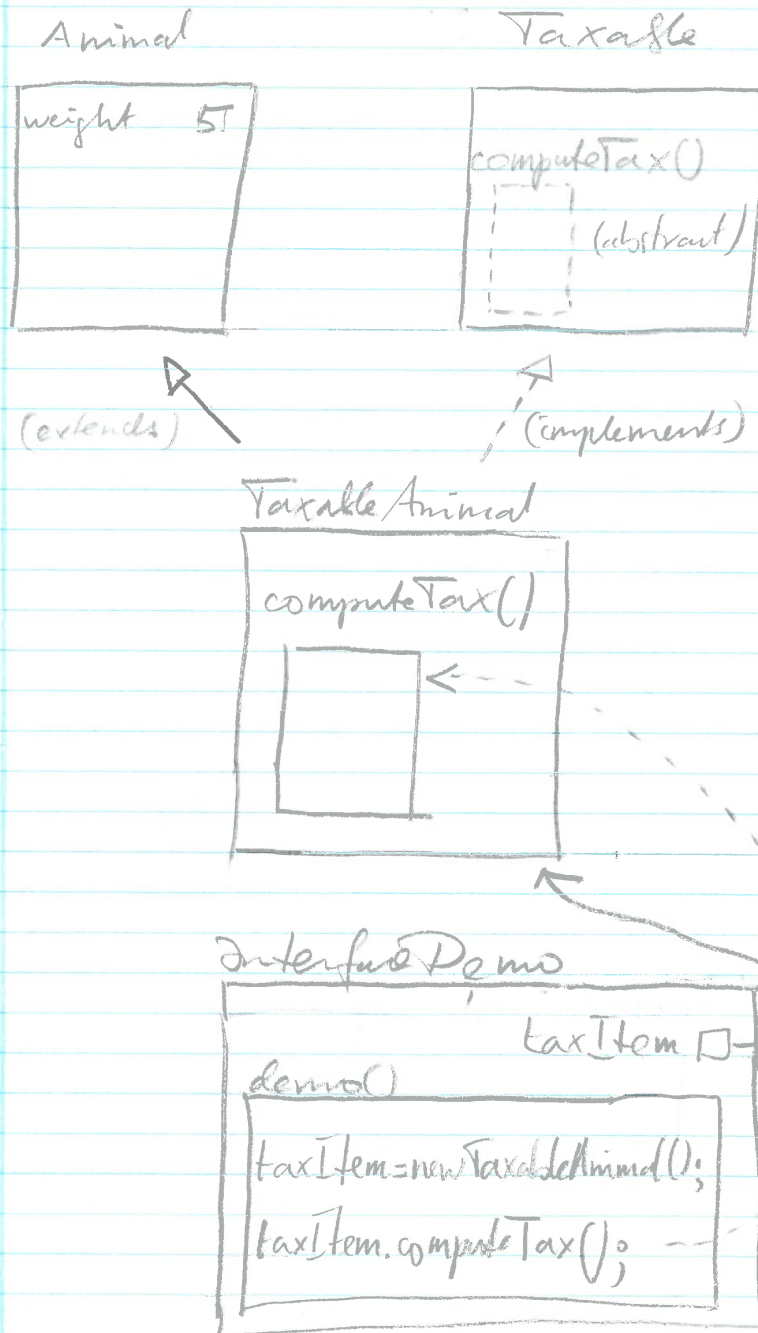 Animal
Taxable
weight 5T
computeTax()
(abstract)
(extends)
(implements)
TaxableAnimal
computeTax()
InterfaceDemo
taxItem
demo()
taxItem=newTaxableAnimal();
taxItem.computeTax();